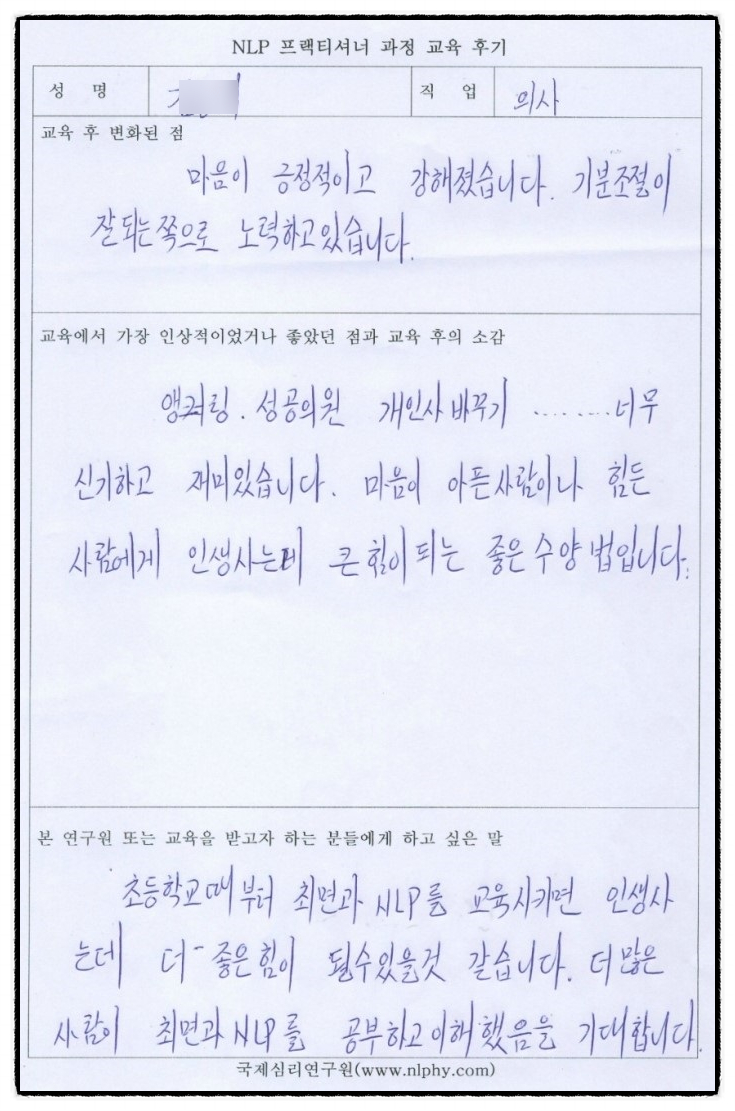 NLP 프랙티셔너 과정 교육 후기
성 명
직 업 의사
교육 후 변화된 점
마음이 긍정적이고 강해졌습니다. 기분조절이
잘되는쪽으로 노력하고있습니다.
교육에서 가장 인상적이었거나 좋았던 점과 교육 후의 소감
앵커링. 성공의원 개인사 바꾸기 ......... 너무
신기하고 재미있습니다. 마음이 아픈사람이나 힘든
사람에게 인생사는데 큰힘이되는 좋은수양법입니다.
본 연구원 또는 교육을 받고자 하는 분들에게 하고 싶은 말
초등학교때부터 최면과 NLP를 교육시키면 인생사
는데 더- 좋은힘이 될수있을것 같습니다. 더많은
사람이 최면과NLP를 공부하고이해했음을 기대합니다.
국제심리연구원(www.nlphy.com)